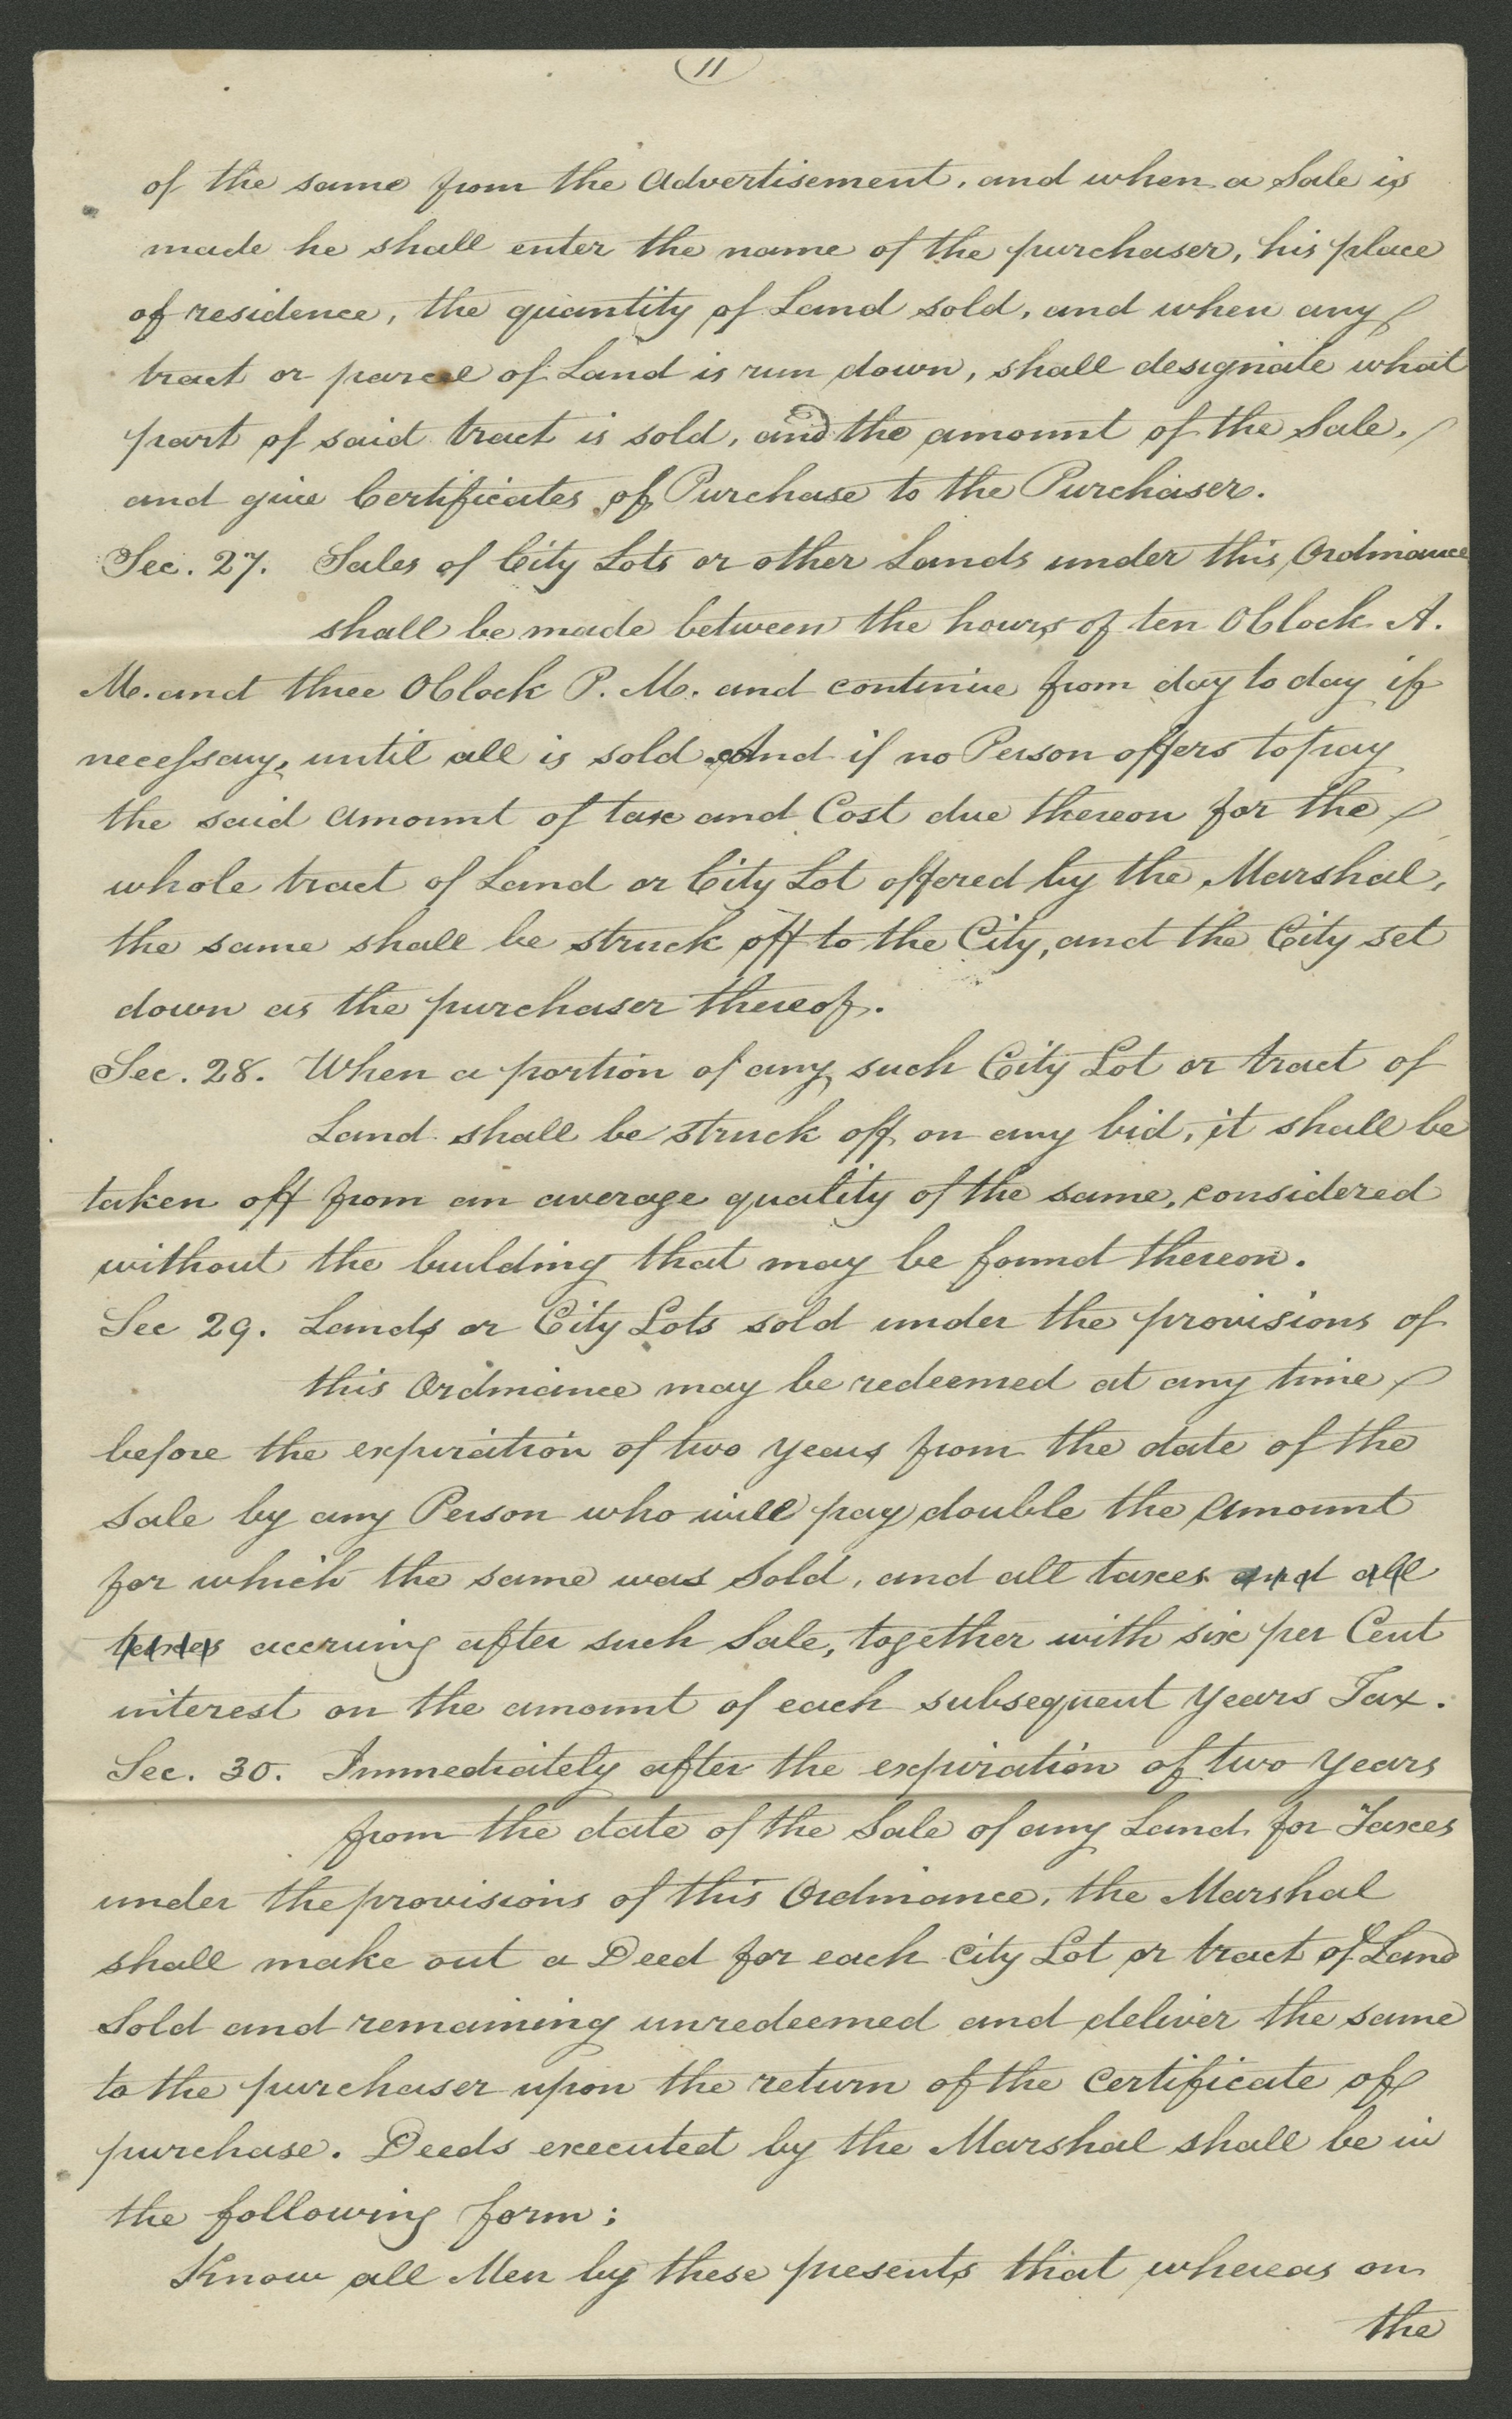 11
of the same from the Advertisement, and when a Sale is
made he shall enter the name of the purchaser, his place
of residence, the quantity of Land sold, and when any
tract or parcel of Land is run down, shall designate what
part of said tract is sold, and the amount of the Sale,
and give Certificates of Purchase to the Purchaser.
Sec. 27. Sales of City Lots or other Lands under this Ordinance
shall be made between the hours of ten OClock A.
M. and three OClock P. M. and continue from day to day if
necessary, until all is sold. And if no Person offers to pay
the said Amount of tax and Cost due thereon for the
whole tract of Land or City Lot offered by the Marshal,
the same shall be struck off to the City, and the City set
down as the purchaser thereof.
Sec. 28. When a portion of any such City Lot or tract of
Land shall be struck off on any bid, it shall be
taken off from an average quality of the same, considered
without the building that may be found thereon.
Sec 29. Lands or City Lots sold under the provisions of
this Ordinance may be redeemed at any time
before the expiration of two years from the date of the
Sale by any Person who will pay double the Amount
for which the same was Sold, and all taxes and all
taxes accruing after such Sale, together with six per Cent
interest on the amount of each subsequent Years Tax.
Sec. 30. Immediately after the expiration of two Years
from the date of the Sale of any Land for Taxes
under the provisions of this Ordinance, the Marshal
shall make out a Deed for each City Lot or tract of Land
Sold and remaining unredeemed and deliver the same
to the purchaser upon the return of the Certificate of
purchase. Deeds executed by the Marshal shall be in
the following form:
Know all Men by these presents that whereas on
the